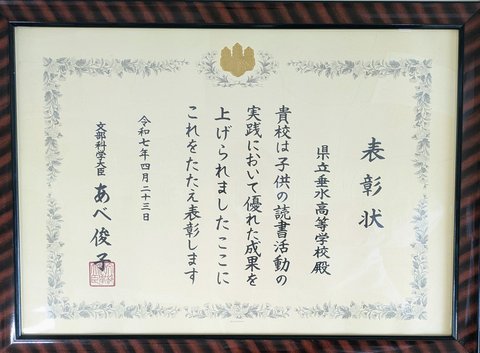 表彰状
県立垂水高等学校殿
貴校は子供の読書活動の
実践において優れた成果を
上げられましたここに
これをたたえ表彰します
令和七年四月二十三日
文部科学大臣 あべ俊子